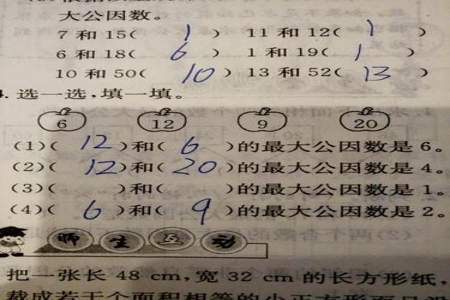 大公因数。
7 和 15( 1 ) 11 和 12( 1 )
6 和 18( 6 ) 1 和 19( 1 )
10 和 50( 10 ) 13 和 52( 13 )
4.选一选,填一填。
6 12 9 20
(1)( 12 )和( 6 )的最大公因数是 6。
(2)( 12 )和( 20 )的最大公因数是 4。
(3)( )和( )的最大公因数是 1。
(4)( 6 )和( 9 )的最大公因数是 2。
师 生 互 动
把一张长 48 cm,宽 32 cm 的长方形纸,
裁成若干个面积相等的小正方形